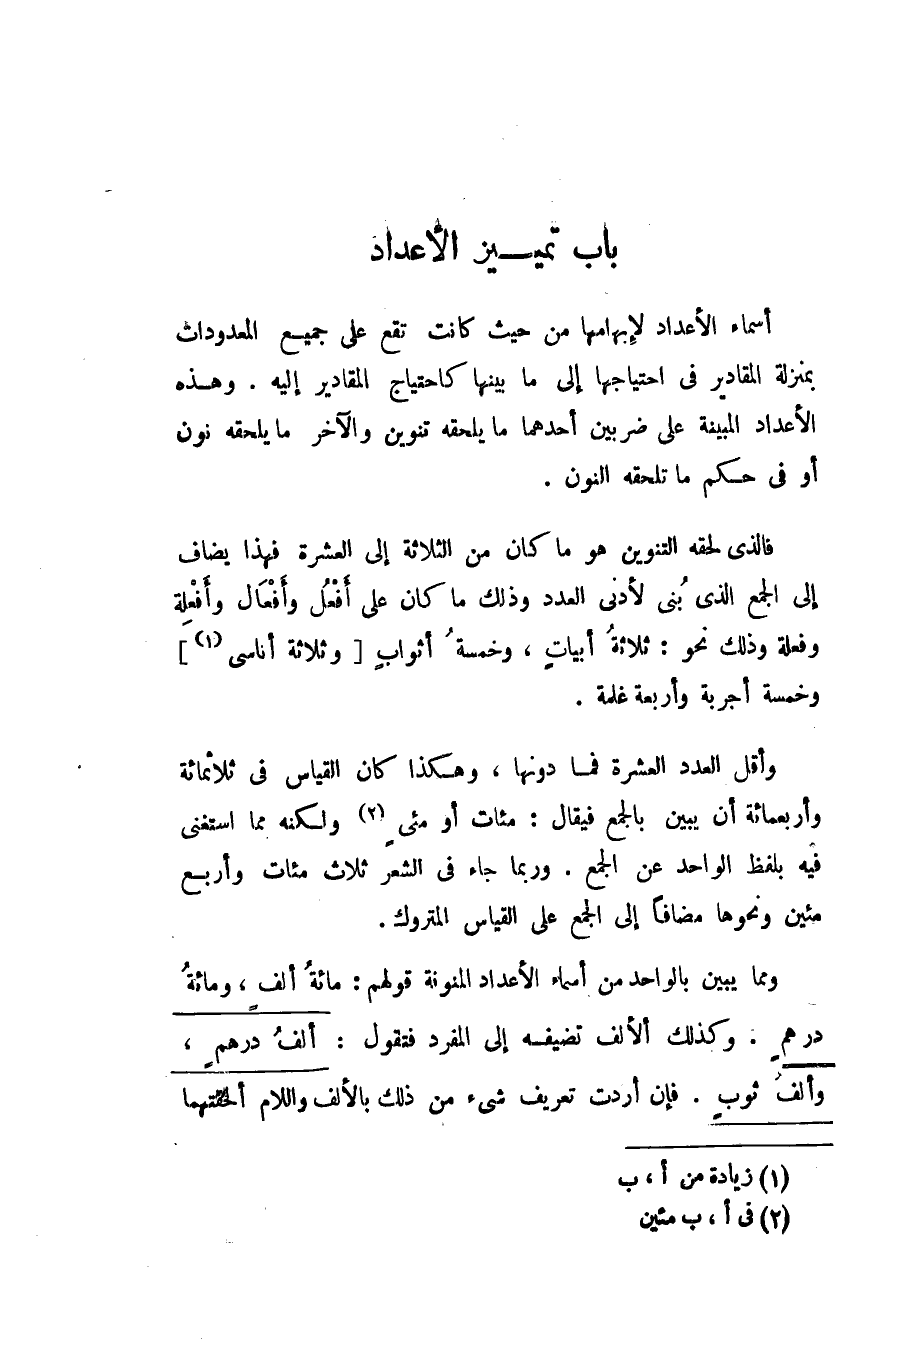 باب تمييز الأعداد
أسماء الأعداد لإبهامها من حيث كانت تقع على جميع المعدودات
بمنزلة المقادير فى احتياجها إلى ما بينها كاحتياج المقادير إليه . وهذه
الأعداد المبينة على ضربين أحدهما ما يلحقه تنوين والآخر ما يلحقه نون
أو فى حكم ما تلحقه النون .
فالذى لحقه التنوين هو ما كان من الثلاثة إلى العشرة فهذا يضاف
إلى الجمع الذى بُنى لأدنى العدد وذلك ما كان على أَفْعُل وأَفْعَال وأَفْعِلة
وفعلة وذلك نحو : ثلاثةُ أبياتٍ ، وخمسةُ أثوابٍ [ وثلاثة أناسى (١) ]
وخمسة أجربة وأربعة غلمة .
وأقل العدد العشرة فما دونها ، وهكذا كان القياس فى ثلاثمائة
وأربعمائة أن يبين بالجمع فيقال : مئات أو مئىٍ (٢) ولكنه مما استغنى
فيه بلفظ الواحد عن الجمع . وربما جاء فى الشعر ثلاث مئات وأربع
مئين ونحوها مضافاً إلى الجمع على القياس المتروك .
ومما يبين بالواحد من أسماء الأعداد المنونة قولهم : مائةُ ألفٍ ، ومائةُ
درهمٍ . وكذلك ألألف تضيفه إلى المفرد فتقول : ألفُ درهمٍ ،
وألفُ ثوبٍ . فإن أردت تعريف شىء من ذلك بالألف واللام ألحقتهما
(١) زيادة من أ ، ب
(٢) فى أ ، ب مئين